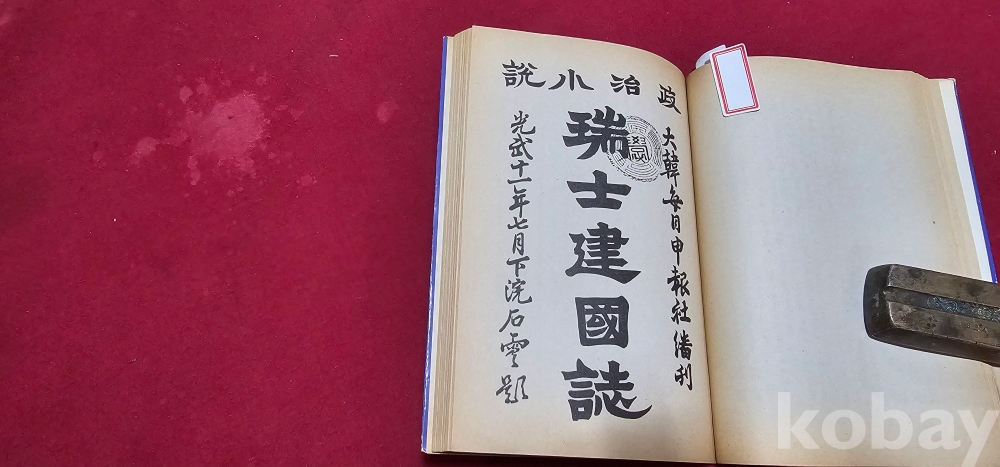 政治小說
大韓每日申報社繙刊
瑞士建國誌
光武十一年七月下浣石雲題
kobay